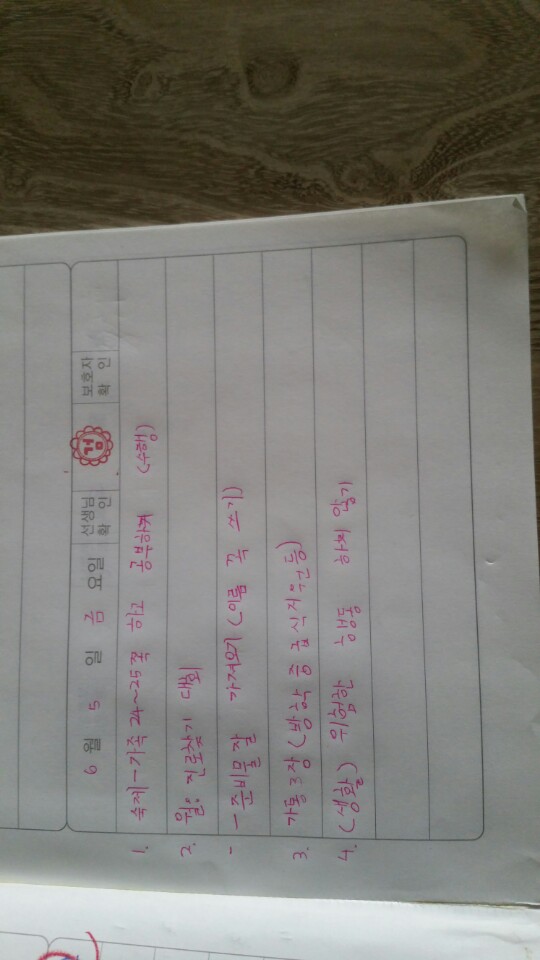 6 월 5 일 금 요일 선생님 확 인 검 보호자 확 인
1. 숙제-가족 24~25쪽 하고 공부하기 (수행)
2. 월: 진로찾기 대회
- -준비물잘 가져오기 (이름 꼭 쓰기)
3. 가통3장 (방학 중 급식지원 등)
4. (생활) 위험한 행동 하지 않기